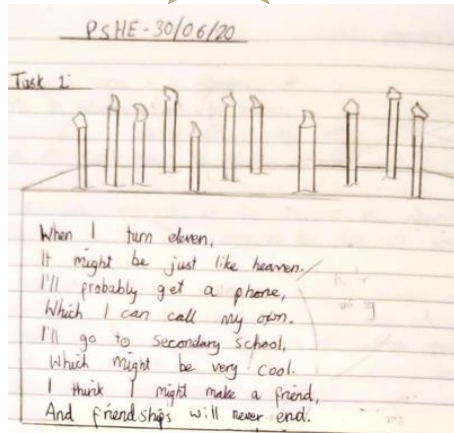 PSHE - 30/06/20
Task 1:
When I turn eleven,
It might be just like heaven.
I'll probably get a phone,
Which I can call my own.
I'll go to secondary school,
Which might be very cool.
I think I might make a friend,
And friendships will never end.